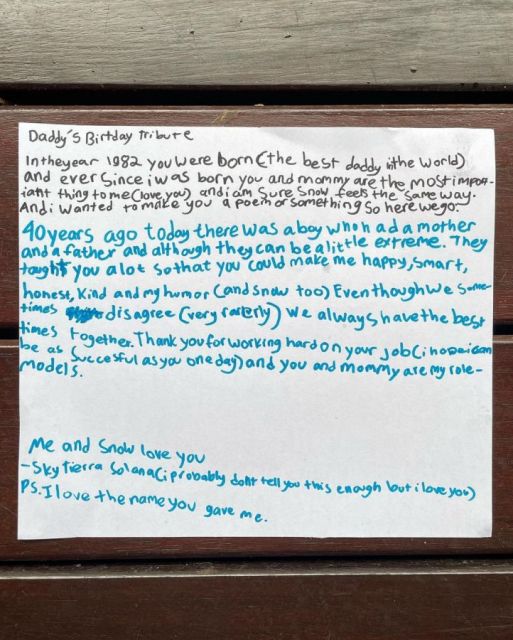 Daddy's Birtday tribute
In the year 1982 you were born (the best daddy in the World)
and ever since i was born you and mommy are the most impor-
tant thing to me (love you) and i am Sure Snow feels the same way.
And i wanted to make you a poem or something so here we go.
40 years ago today there was a boy who had a mother
and a father and although they can be a little extreme. They
taught you a lot so that you could make me happy, smart,
honest, Kind and my humor (and snow too) Even though we some-
times disagree (very rarerly) we always have the best
times together. Thank you for working hard on your job (i hope i can
be as succesful as you one day) and you and mommy are my role-
models.
Me and Snow love you
-Sky tierra Solana (i probably dont tell you this enough but i love you)
PS. I love the name you gave me.